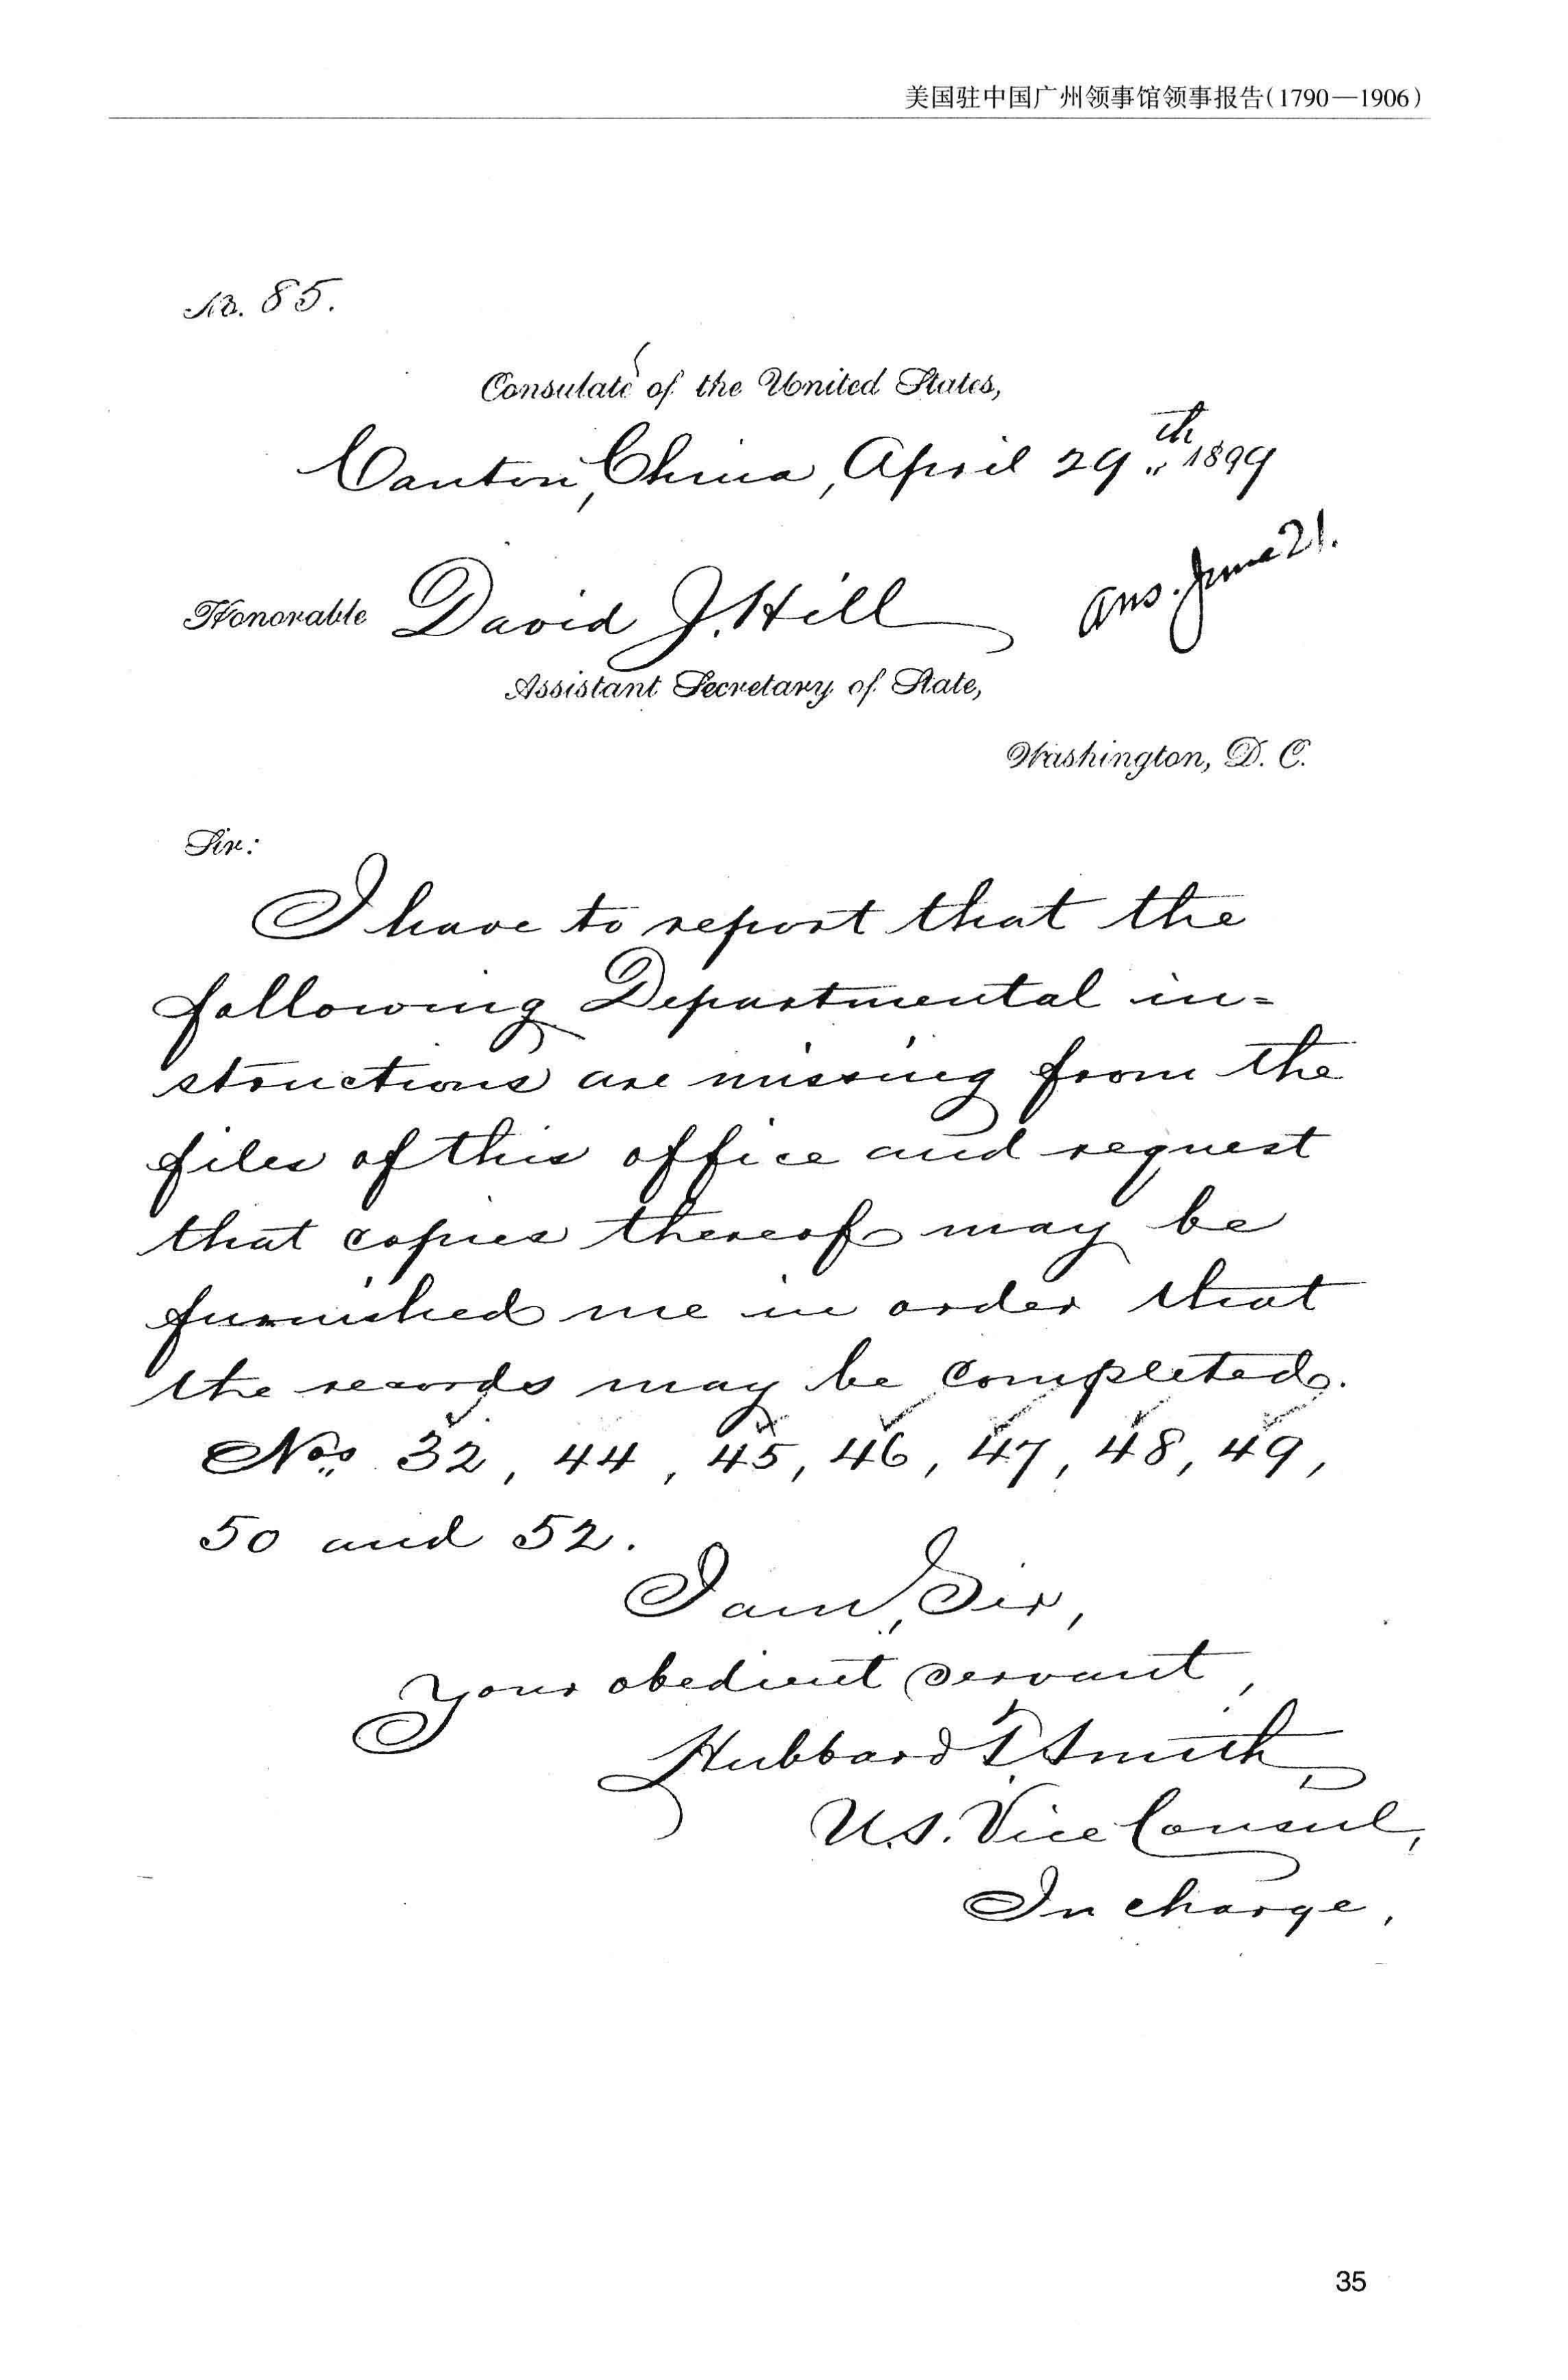 美国驻中国广州领事馆领事报告(1790—1906)
No. 85.
Consulate of the United States,
Canton, China, April 29th 1899
Ans. June 21.
Honorable David J. Hill
Assistant Secretary of State,
Washington, D. C.
Sir:
I have to report that the
following Departmental in=
structions are missing from the
files of this office and request
that copies thereof may be
furnished me in order that
the records may be completed.
Nos 32, 44, 45, 46, 47, 48, 49,
50 and 52.
I am, Sir,
Your obedient servant,
Hubbard T. Smith,
U.S. Vice Consul,
In charge,
35